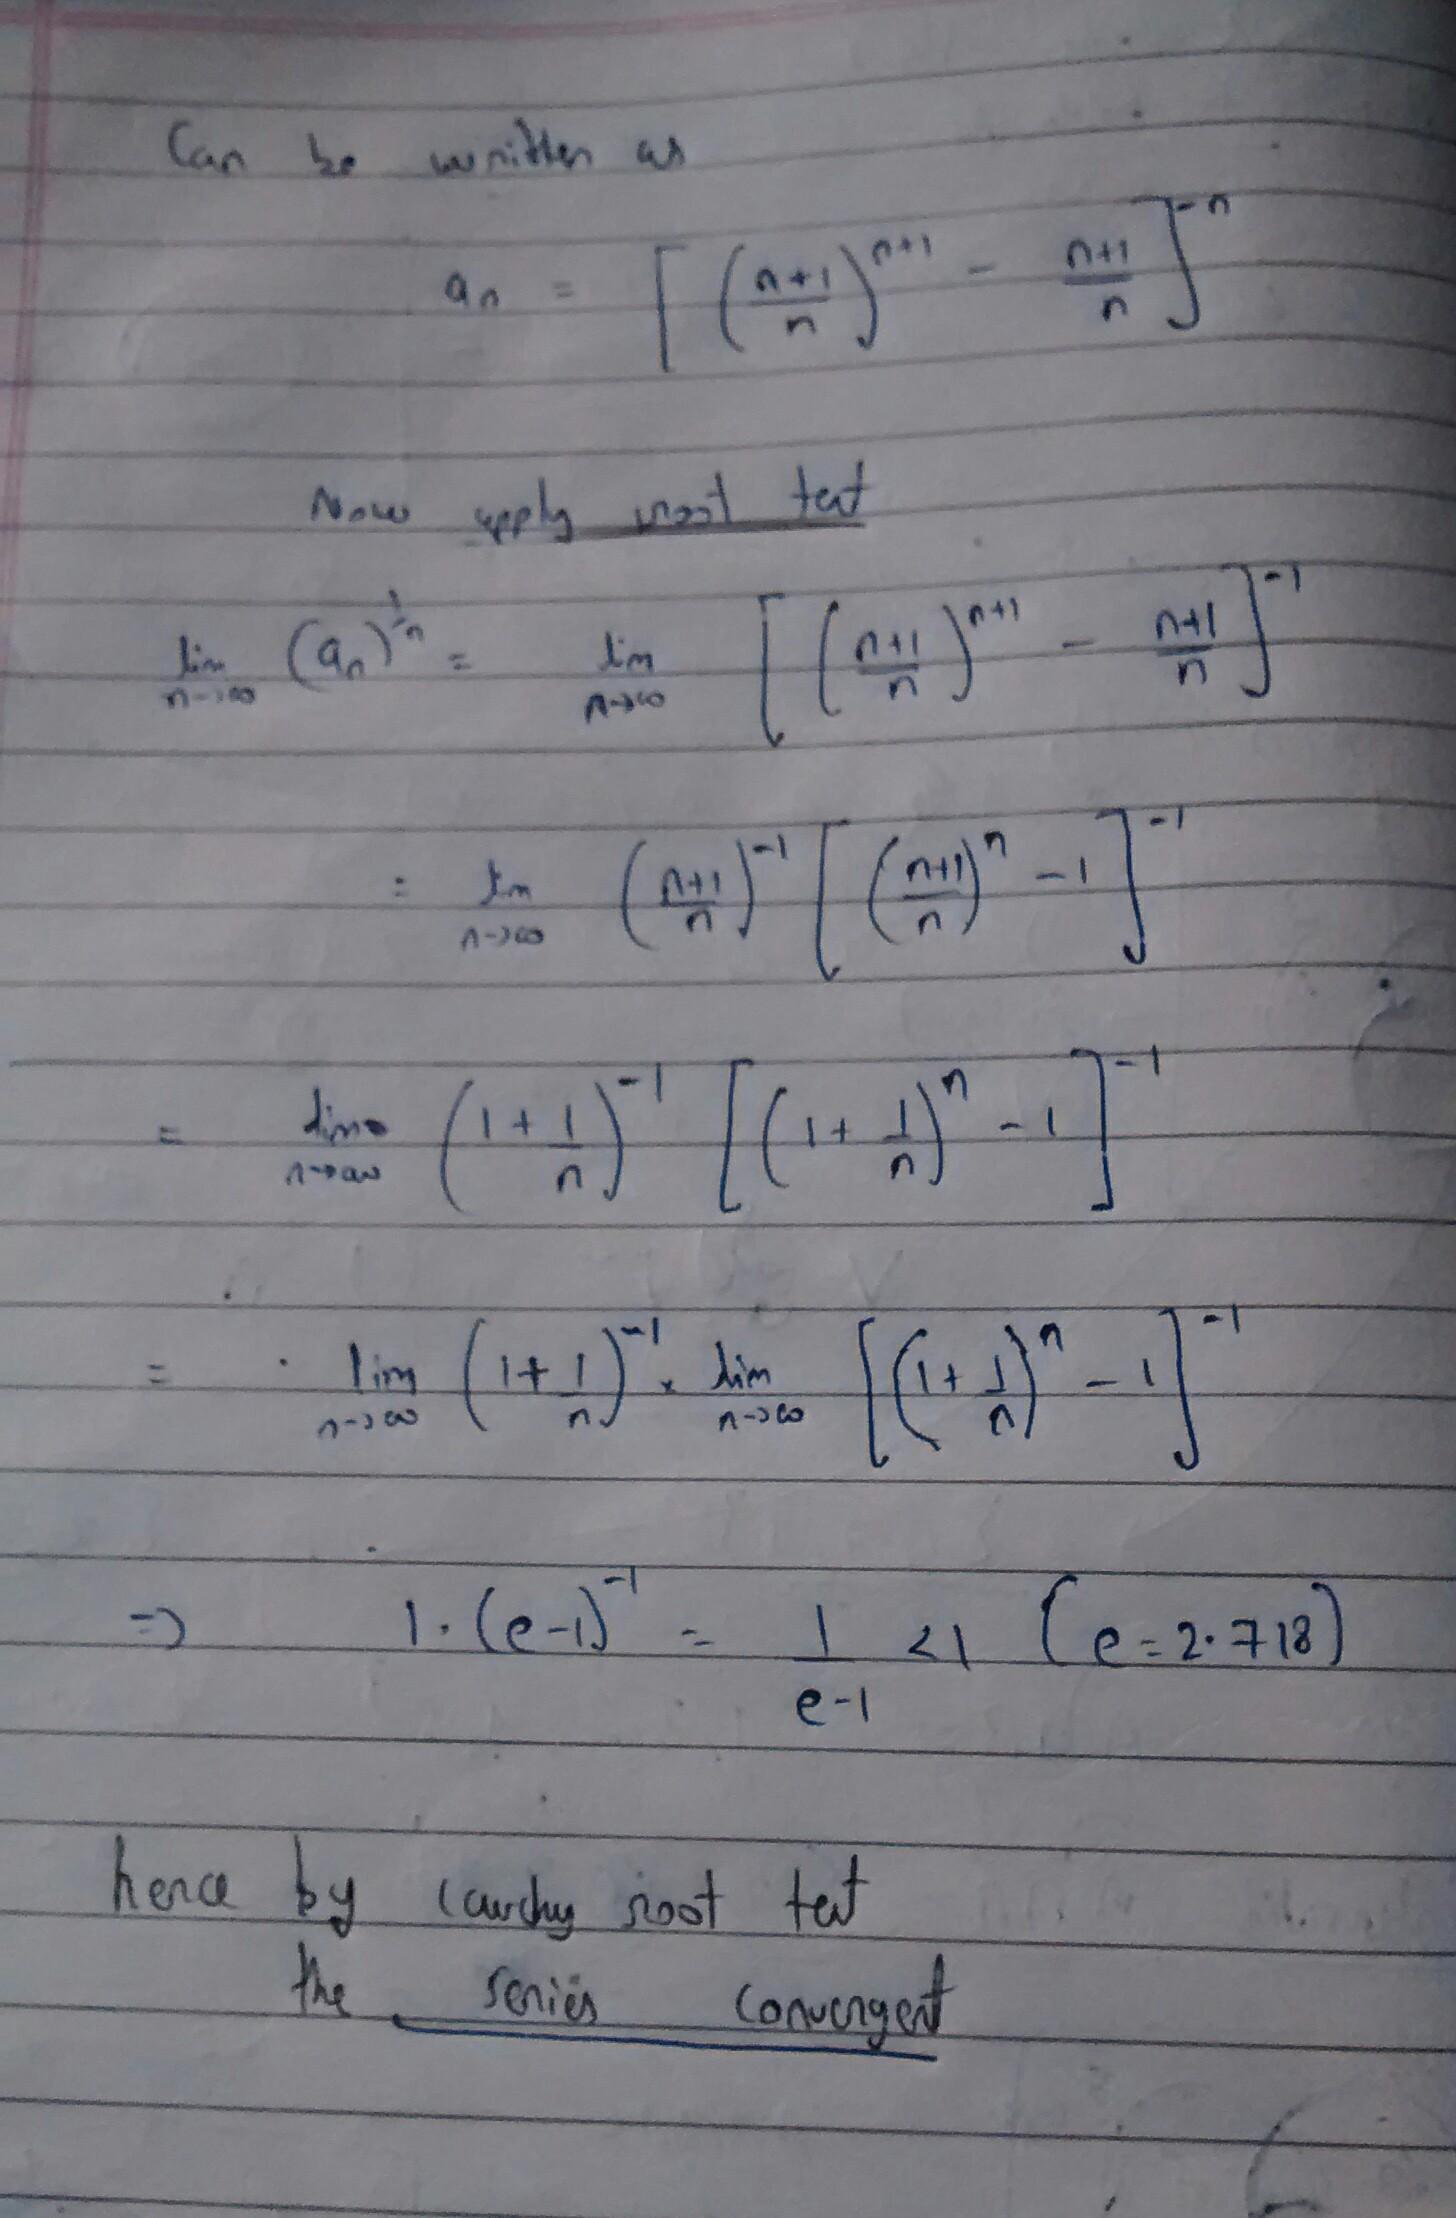 Can be written as
aₙ = [ ((n+1)/n)^(n+1) - (n+1)/n ]^(-n)
Now apply root test
lim n→∞ (aₙ)^(1/n) = lim n→∞ [ ((n+1)/n)^(n+1) - (n+1)/n ]^(-1)
= lim n→∞ ((n+1)/n)^(-1) [ ((n+1)/n)^n - 1 ]^(-1)
= lim n→∞ (1 + 1/n)^(-1) [ (1 + 1/n)^n - 1 ]^(-1)
= lim n→∞ (1 + 1/n)^(-1) × lim n→∞ [ (1 + 1/n)^n - 1 ]^(-1)
⇒ 1·(e-1)^(-1) = 1/(e-1) < 1 (e = 2.718)
hence by cauchy root test
the series convergent